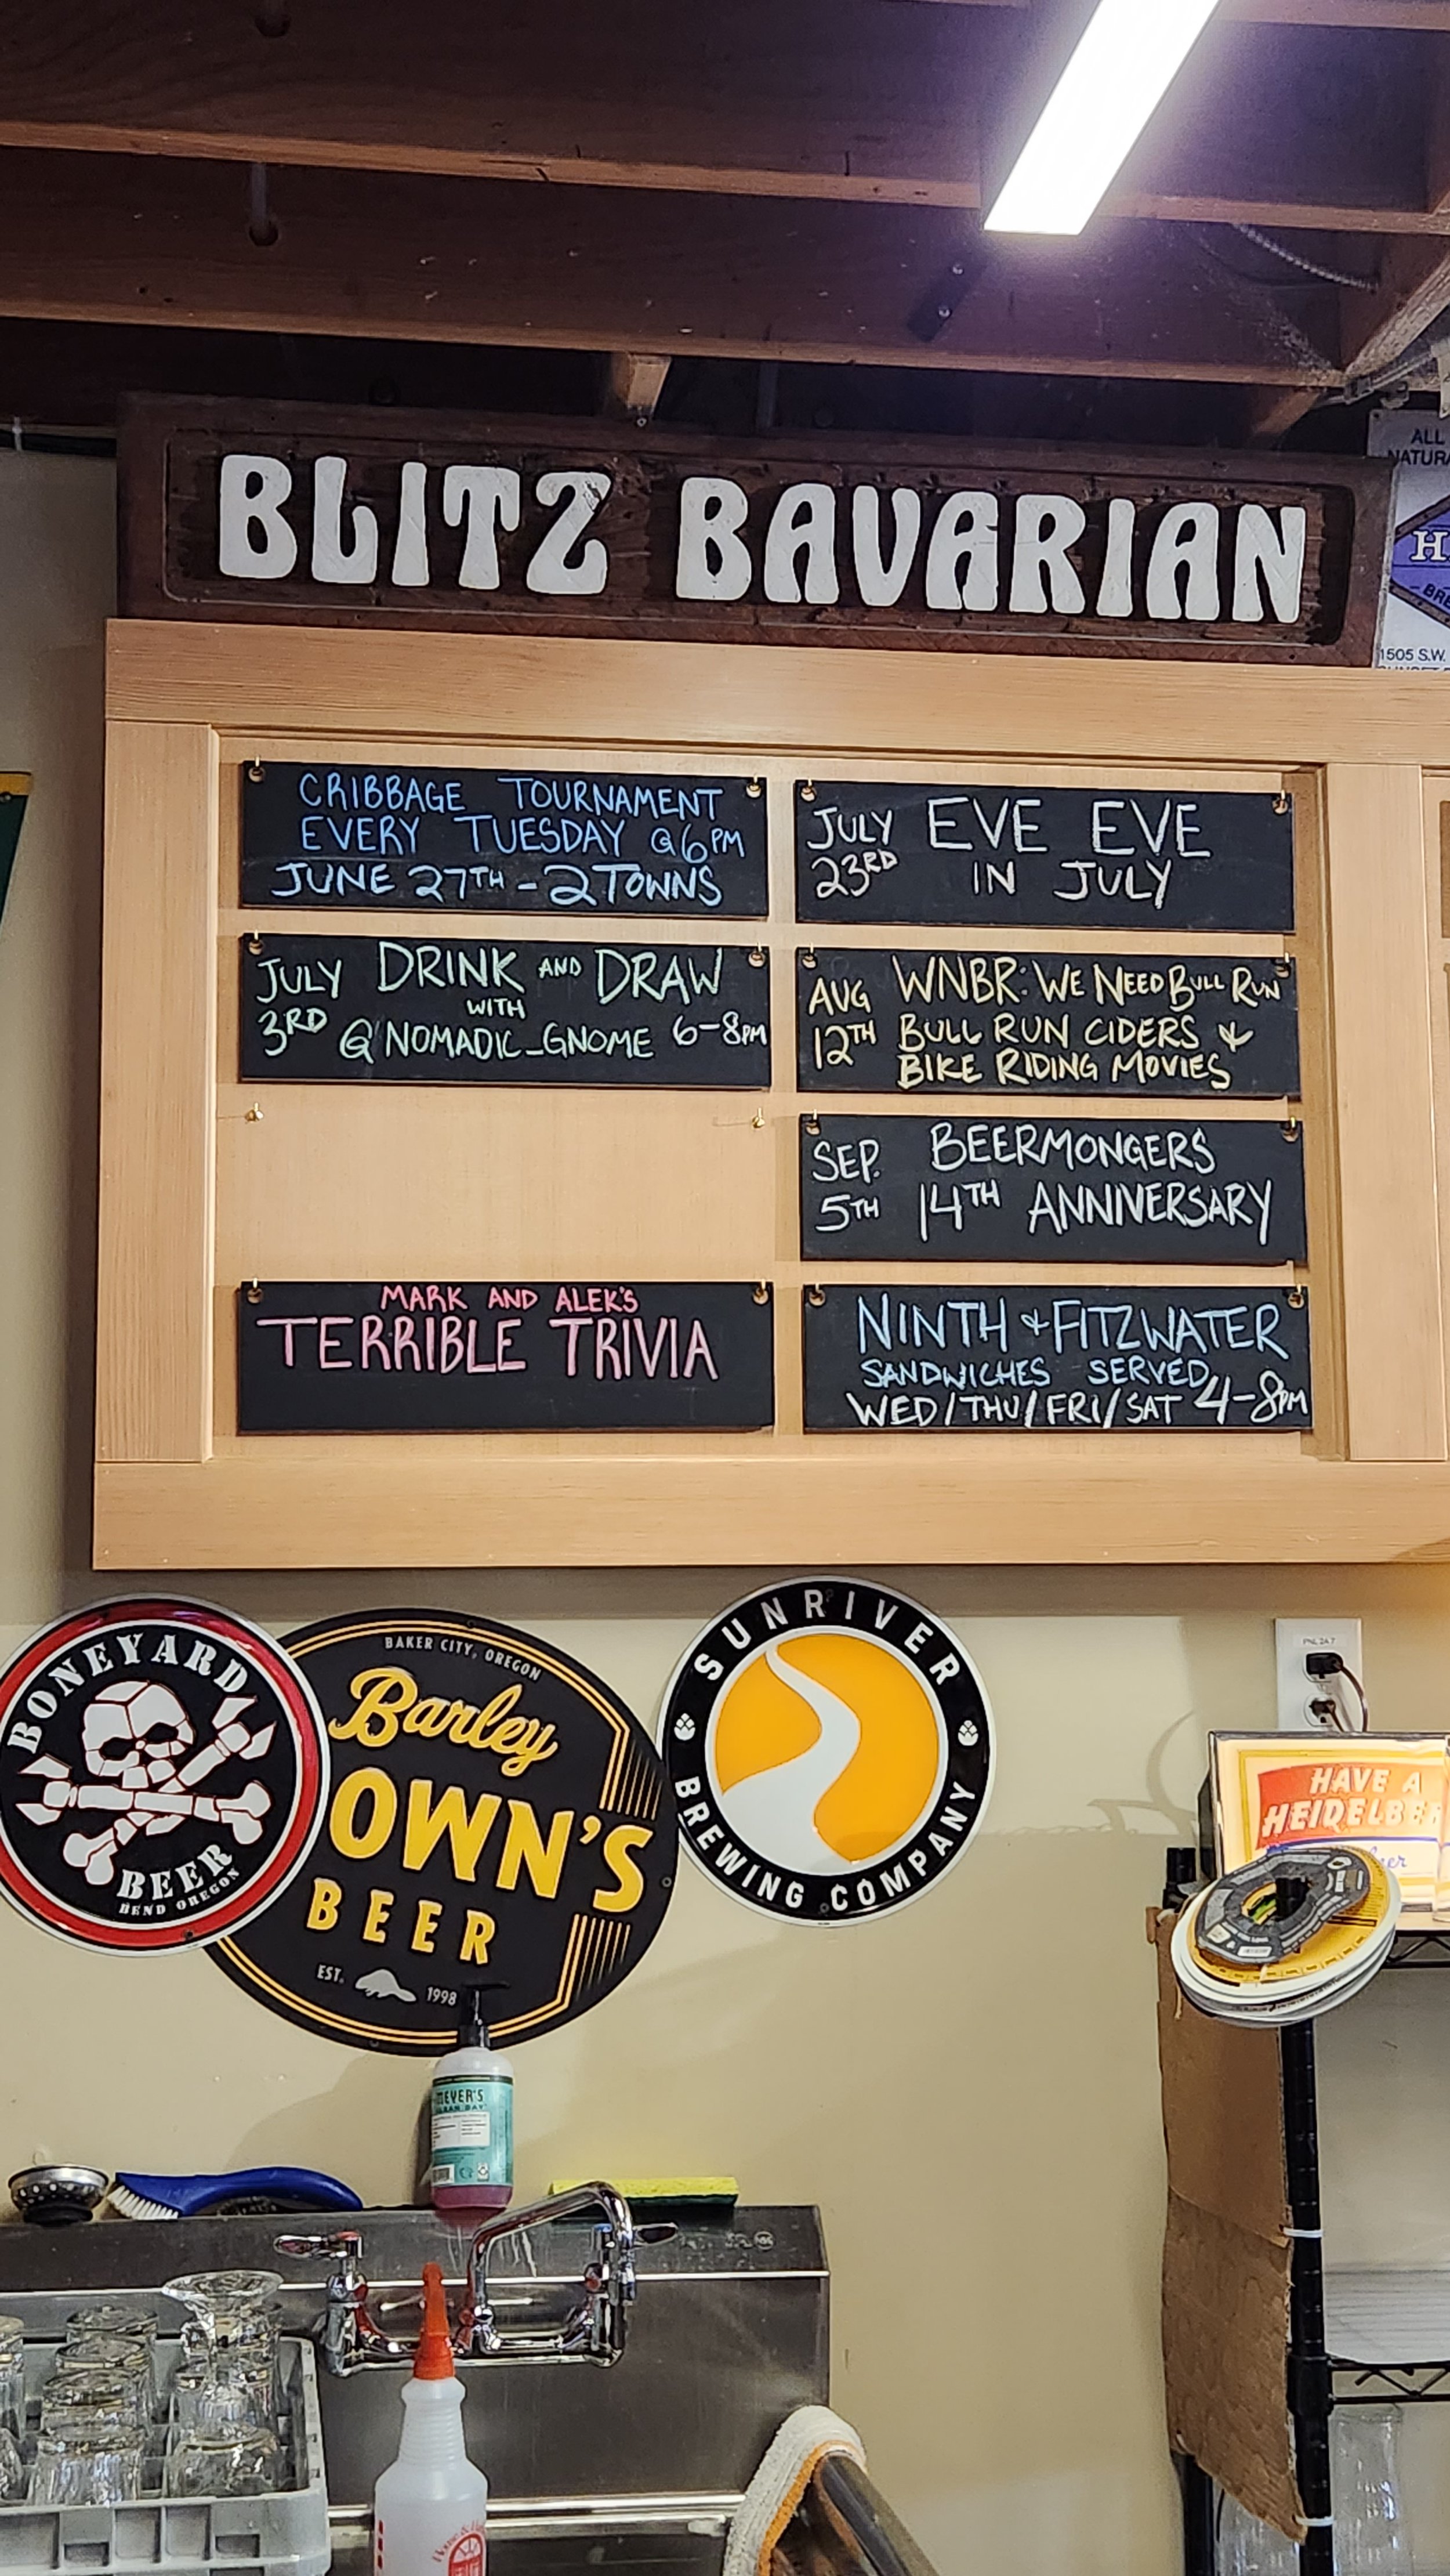 BLITZ BAVARIAN
ALL
NATURA
H
BRE
1505 S.W.
CRIBBAGE TOURNAMENT
EVERY TUESDAY @ 6PM
JUNE 27TH - 2 TOWNS
JULY 3RD
DRINK AND DRAW
WITH
@NOMADIC_GNOME 6-8PM
MARK AND ALEK'S
TERRIBLE TRIVIA
JULY 23RD
EVE EVE
IN JULY
AUG 12TH
WNBR: WE NEED BULL RUN
BULL RUN CIDERS &
BIKE RIDING MOVIES
SEP. 5TH
BEERMONGERS
14TH ANNIVERSARY
NINTH & FITZWATER
SANDWICHES SERVED
WED/THU/FRI/SAT 4-8PM
BONEYARD
BEER
BEND OREGON
BAKER CITY, OREGON
Barley
OWN'S
BEER
EST. 1998
SUNRIVER
BREWING COMPANY
HAVE A
HEIDELBE
MEYER'S